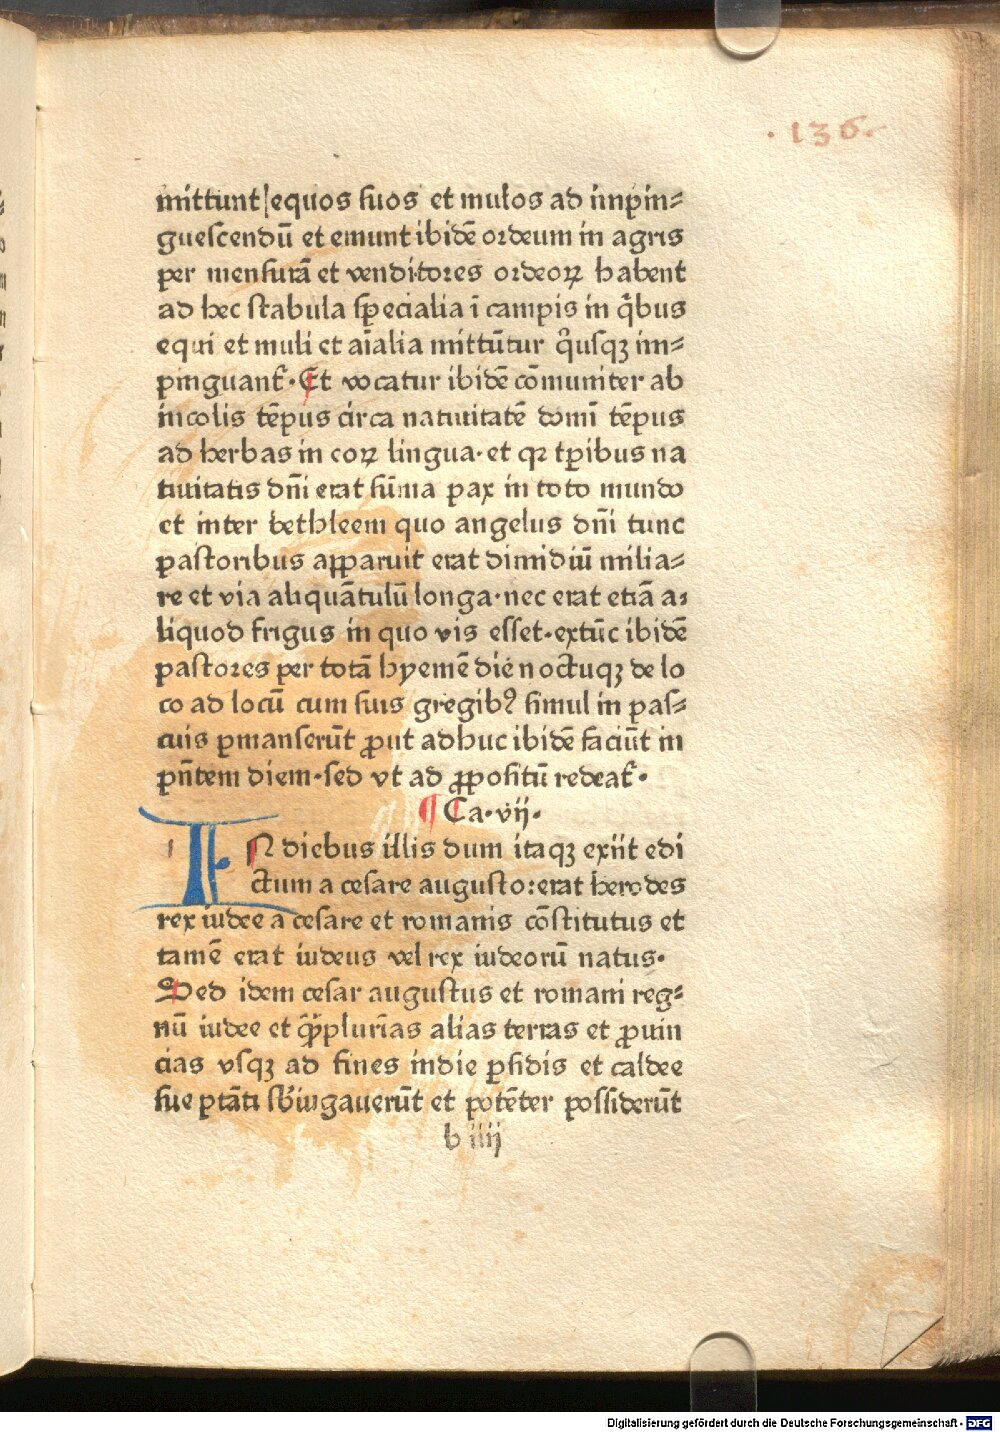 .136.
mittunt equos suos et mulos ad inpin⸗
guescendū et emunt ibidē ordeum in agris
per mensurā et venditores ordeoꝝ habent
ad hec stabula specialia ī campis in q̄bus
equi et muli et aīalia mittūtur q̊usqꝫ im⸗
pinguant᷑. Et vocatur ibidē cōmuniter ab
incolis tēpus circa natiuitatē domī tēpus
ad herbas in coꝝ lingua. et qꝛ tꝑibus na
tiuitatis dn̄i erat sūma pax in toto mundo
et inter bethleem quo angelus dn̄i tunc
pastoribus apparuit erat dimidiū milia⸗
re et via aliquātulū longa. nec erat etiā a⸗
liquod frigus in quo vis esset. extūc ibidē
pastores per totā hyemē die noctuqꝫ de lo
co ad locū cum suis gregibꝰ simul in pas⸗
cuis ꝑmanserūt ꝓut adhuc ibidē faciūt in
pn̄tem diem. sed vt ad ꝓpositū redeat᷑.
¶ Ca. vij.
IN diebus illis dum itaqꝫ exiit edi
ctum a cesare augusto: erat herodes
rex iudee a cesare et romanis cōstitutus et
tamē erat iudeus vel rex iudeorū natus.
Sed idem cesar augustus et romani reg⸗
nū iudee et qͣꝫplurīas alias terras et ꝓuin
cias vsqꝫ ad fines indie ꝑsidis et caldee
sue ꝑtāti sb̓iugauerūt et potēter possiderūt
b iiij
Digitalisierung gefördert durch die Deutsche Forschungsgemeinschaft - DFG